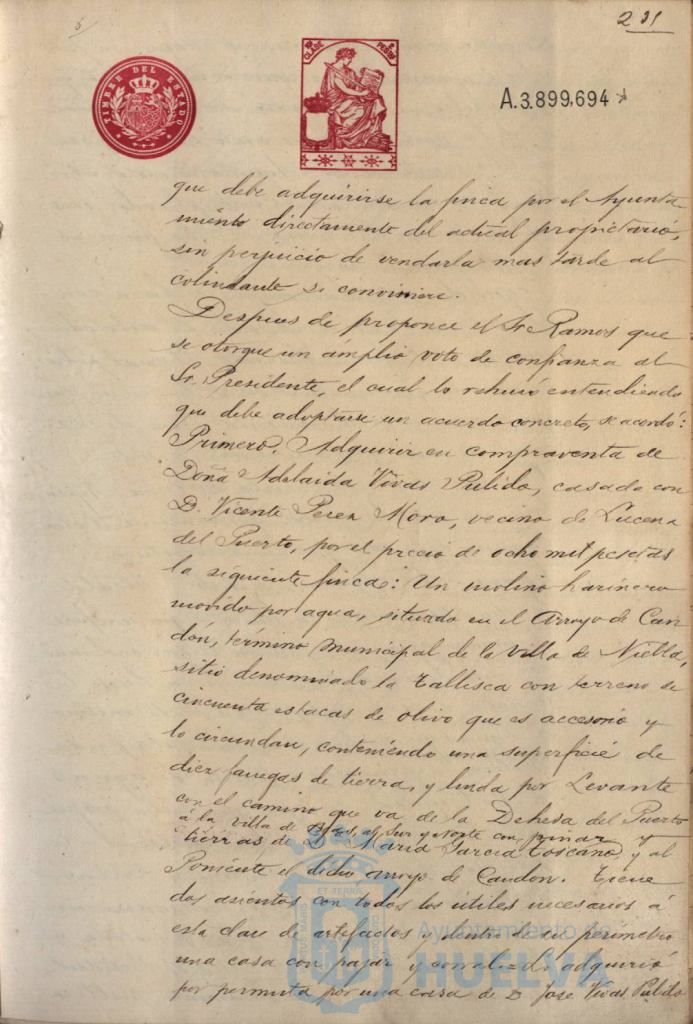 231
TIMBRE DEL ESTADO
CLASE
PESETAS
A.3.899,694
que debe adquirirse la finca por el Ayunta
miento directamente del actual propietario,
sin perjuicio de venderla mas tarde al
colindante si conviniere.
Despues de proponer el Sr Ramos que
se otorgue un ámplio voto de confianza al
Sr. Presidente, el cual lo rehusó entendiendo
que debe adoptarse un acuerdo concreto, se acordó:
Primero. Adquirir en compraventa de
Doña Adelaida Vivas Pulido, casada con
D. Vicente Perez Moro, vecino de Lucena
del Puerto, por el precio de ocho mil pesetas
la siguiente finca: Un molino harinero
movido por agua, situado en el Arroyo de Can
dón, término municipal de la villa de Niebla,
sitio denominado la Tallisca con terreno de
cincuenta estacas de olivo que es accesorio y
lo circundan, conteniendo una superficie de
diez fanegas de tierra, y linda por Levante
con el camino que va de la Dehesa del Puerto
á la villa de Bºs, al Sur y Norte con pinar y
tierras de D. Maria Garcia Toscano y al
Poniente el dicho arroyo de Candon. Tiene
dos asientos con todos los útiles necesarios á
esta clase de artefactos y dentro de su perimetro
una casa con pajar y corral = La adquirió
por permuta por una casa de D Jose Vivas Pulido
Ayuntamiento de
HUELVA